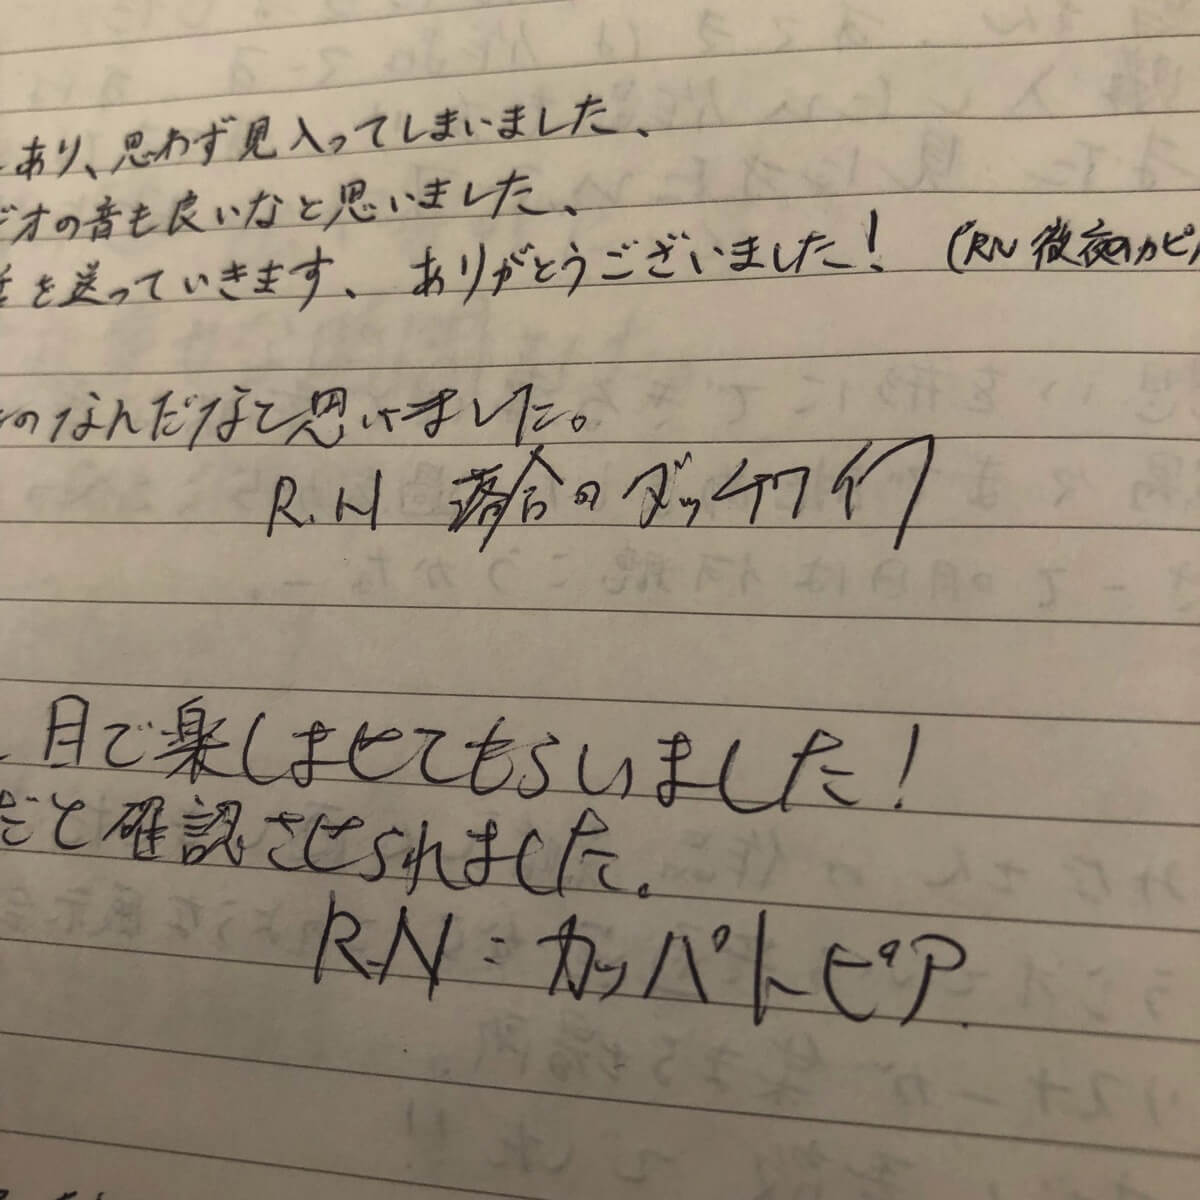 あり、思わず見入ってしまいました、
ジオの音も良いなと思いました、
を送っていきます、ありがとうございました! (RN 徹夜のカピ
のなんだなと思いました。
R.N 落合のダッチワイフ
目で楽しませてもらいました!
だと確認させられました。
RN:カッパトピア